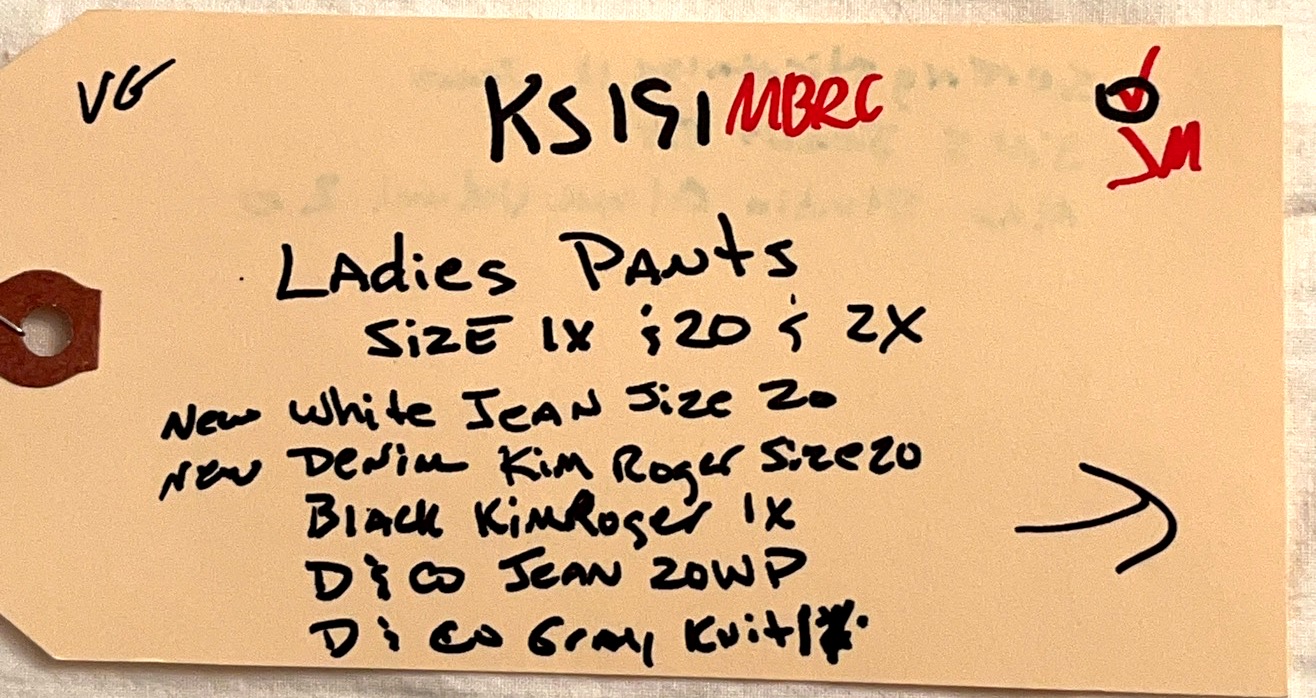 VG
KS191 MBRC
JM
LAdies PANtS
SizE 1X & 20 & 2X
New White JeAN Size 20
New Denim Kim Roger Size 20
BlAck KimRoger 1X
D & CO JEAN 20WP
D & CO Gray Knit 1X